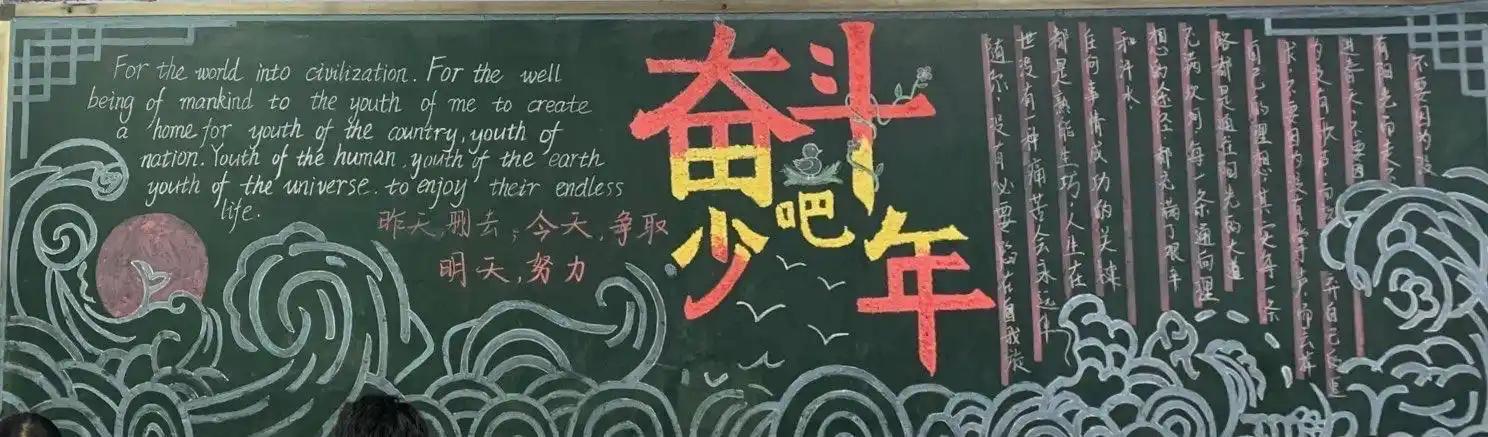 For the world into civilization. For the well
being of mankind to the youth of me to create
a home for youth of the country, youth of
nation. Youth of the human, youth of the earth
youth of the universe. to enjoy their endless
life.
昨天,删去;今天,争取
明天,努力
奋斗
吧
少年
不要因为没
有阳光而走
进春天 不要因
自己的理想,其实每一条
路都是通往阳光的大道
每一条通向理
想的途径都充满了艰辛
和汗水
任何事情成功的关键
都是熟能生巧,人生在
世没有一种痛苦会永远伴
随你,没有必要陷在自我